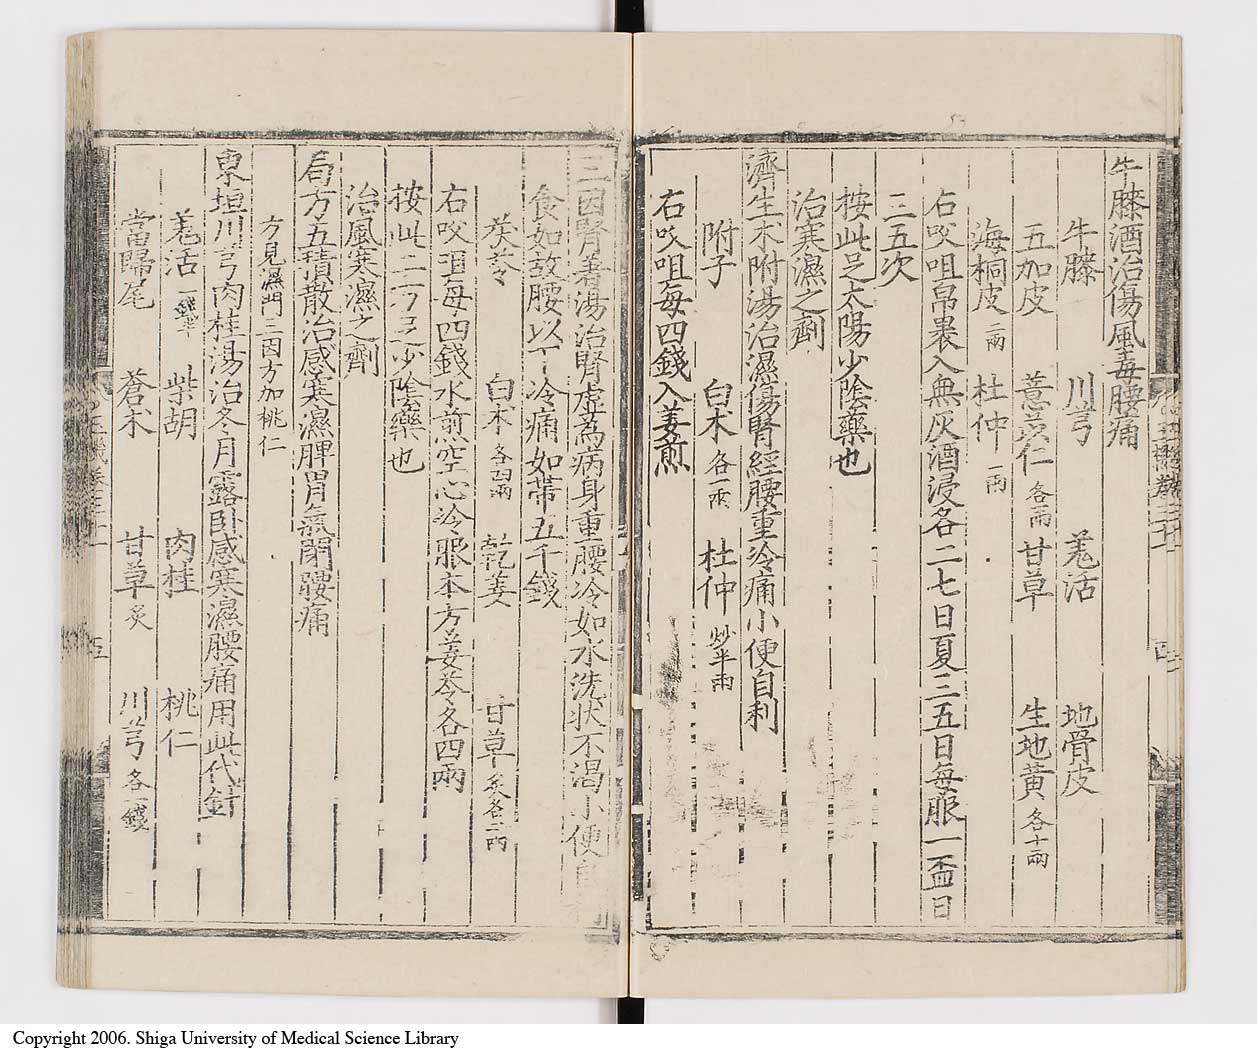 牛膝酒治傷風毒腰痛
牛膝 川芎 羗活 地骨皮
五加皮 薏苡仁各一兩 甘草 生地黄各十兩
海桐皮二兩 杜仲一兩
右㕮咀帛裹入無灰酒浸冬二七日夏三五日每服一盃日
三五次
按此足太陽少陰藥也
治寒濕之劑
濟生术附湯治濕傷腎經腰重冷痛小便自利
附子 白术各一兩 杜仲炒半兩
右㕮咀每四錢入姜煎
三因腎著湯治腎虛爲病身重腰冷如水洗狀不渴小便自利
食如故腰以下冷痛如帶五千錢
茯苓 白术各四兩 乾姜 甘草炙各二兩
右㕮咀每四錢水煎空心冷服本方姜苓各四兩
按此二方足少陰藥也
治風寒濕之劑
局方五積散治感寒濕脾胃氣閉腰痛
方見濕門三因方加桃仁
東垣川芎肉桂湯治冬月露卧感寒濕腰痛用此代針
羗活一錢半 柴胡 肉桂 桃仁
當歸尾 蒼术 甘草炙 川芎各一錢
Copyright 2006. Shiga University of Medical Science Library